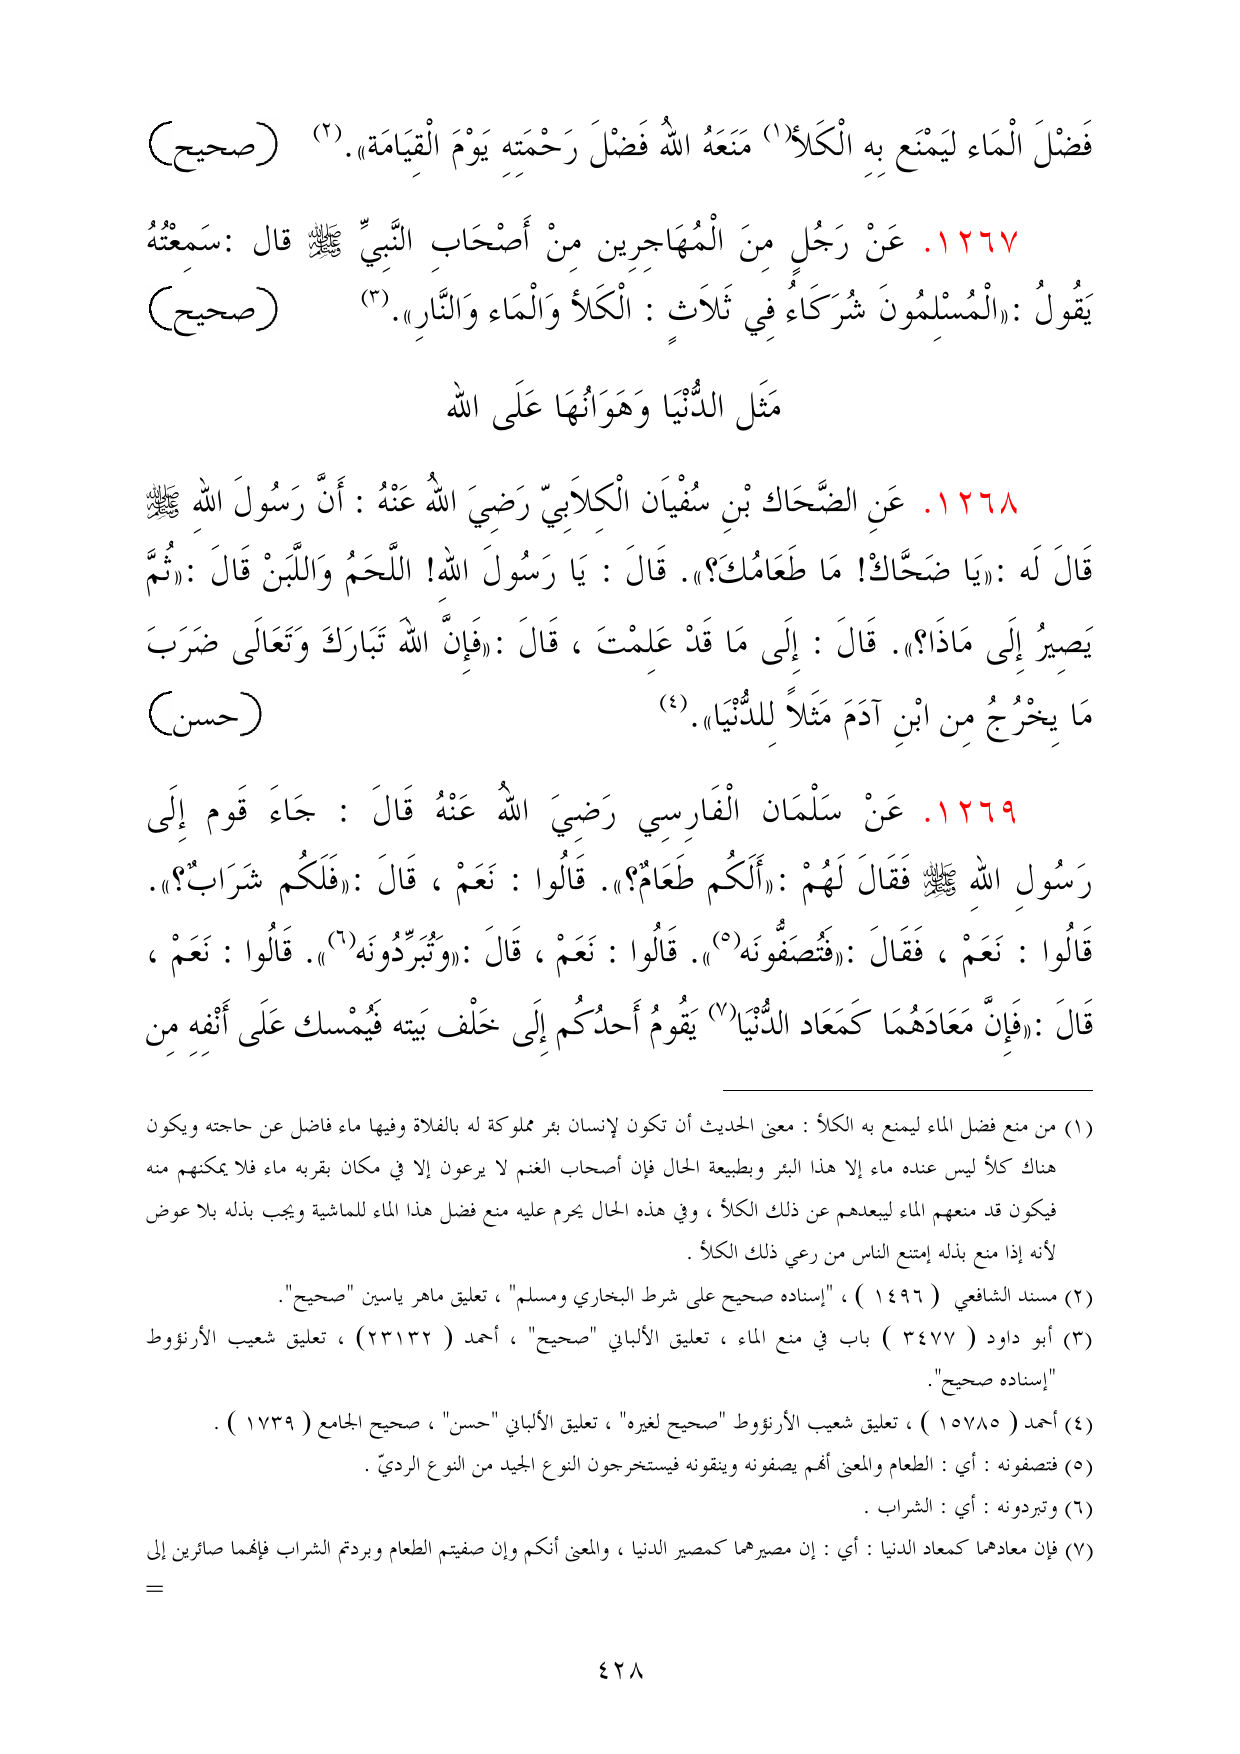 فَضْلَ الْمَاء لِيَمْنَع بِهِ الْكَلأ(١) مَنَعَهُ اللهُ فَضْلَ رَحْمَتِهِ يَوْمَ الْقِيَامَة». (٢) (صحيح)
١٢٦٧. عَنْ رَجُلٍ مِنَ الْمُهَاجِرِين مِنْ أَصْحَابِ النَّبِيِّ ﷺ قال :سَمِعْتُهُ
يَقُولُ :«الْمُسْلِمُونَ شُرَكَاءُ فِي ثَلَاثٍ : الْكَلأ وَالْمَاء وَالنَّارِ». (٣) (صحيح)
مَثَل الدُّنْيَا وَهَوَانُهَا عَلَى الله
١٢٦٨. عَنِ الضَّحَاك بْنِ سُفْيَان الْكِلاَبِيّ رَضِيَ اللهُ عَنْهُ : أَنَّ رَسُولَ اللهِ ﷺ
قَالَ لَه :«يَا ضَحَّاكْ! مَا طَعَامُكَ؟». قَالَ : يَا رَسُولَ اللهِ! اللَّحَمُ وَاللَّبَنْ قَالَ :«ثُمَّ
يَصِيرُ إِلَى مَاذَا؟». قَالَ : إِلَى مَا قَدْ عَلِمْتَ ، قَالَ :«فَإِنَّ اللهَ تَبَارَكَ وَتَعَالَى ضَرَبَ
مَا يخْرُجُ مِن ابْنِ آدَمَ مَثَلاً لِلدُّنْيَا». (٤) (حسن)
١٢٦٩. عَنْ سَلْمَان الْفَارِسِي رَضِيَ اللهُ عَنْهُ قَالَ : جَاءَ قَوم إِلَى
رَسُولِ اللهِ ﷺ فَقَالَ لَهُمْ :«أَلَكُم طَعَامٌ؟». قَالُوا : نَعَمْ ، قَالَ :«فَلَكُم شَرَابٌ؟».
قَالُوا : نَعَمْ ، فَقَالَ :«فَتُصَفُّونَه(٥)». قَالُوا : نَعَمْ ، قَالَ :«وَتُبَرِّدُونَه(٦)». قَالُوا : نَعَمْ ،
قَالَ :«فَإِنَّ مَعَادَهُمَا كَمَعَاد الدُّنْيَا(٧) يَقُومُ أَحدُكُم إِلَى خَلْف بَيته فَيُمْسك عَلَى أَنْفِهِ مِن
(١) من منع فضل الماء ليمنع به الكلأ : معنى الحديث أن تكون لإنسان بئر مملوكة له بالفلاة وفيها ماء فاضل عن حاجته ويكون
هناك كلأ ليس عنده ماء إلا هذا البئر وبطبيعة الحال فإن أصحاب الغنم لا يرعون إلا في مكان بقربه ماء فلا يمكنهم منه
فيكون قد منعهم الماء ليبعدهم عن ذلك الكلأ ، وفي هذه الحال يحرم عليه منع فضل هذا الماء للماشية ويجب بذله بلا عوض
لأنه إذا منع بذله إمتنع الناس من رعي ذلك الكلأ .
(٢) مسند الشافعي ( ١٤٩٦ ) ، "إسناده صحيح على شرط البخاري ومسلم" ، تعليق ماهر ياسين "صحيح".
(٣) أبو داود ( ٣٤٧٧ ) باب في منع الماء ، تعليق الألباني "صحيح" ، أحمد ( ٢٣١٣٢) ، تعليق شعيب الأرنؤوط
"إسناده صحيح".
(٤) أحمد ( ١٥٧٨٥ ) ، تعليق شعيب الأرنؤوط "صحيح لغيره" ، تعليق الألباني "حسن" ، صحيح الجامع ( ١٧٣٩ ) .
(٥) فتصفونه : أي : الطعام والمعنى أنهم يصفونه وينقونه فيستخرجون النوع الجيد من النوع الرديّ .
(٦) وتبردونه : أي : الشراب .
(٧) فإن معادهما كمعاد الدنيا : أي : إن مصيرهما كمصير الدنيا ، والمعنى أنكم وإن صفيتم الطعام وبردتم الشراب فإنهما صائرين إلى
=
٤٢٨